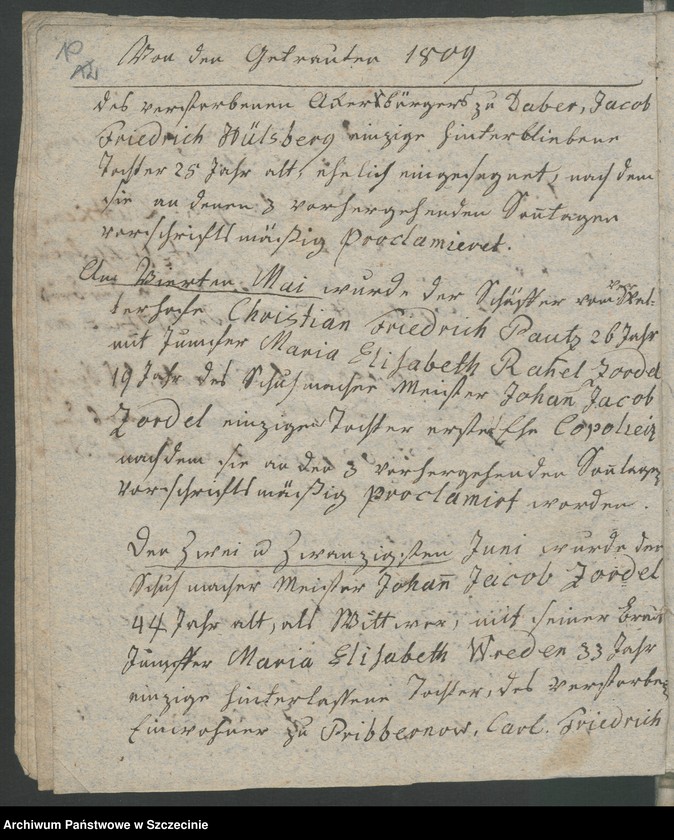 Von den Getrauten 1809
des verstorbenen Akersbürgers zu Daber, Jacob
Friedrich Hülsberg einzige hinterbliebene
Tochter 25 Jahr alt, ehelich eingesegnet, nach dem
sie an denen 3 vorhergehenden Sonntagen
vorschriftsmäßig proclamieret.
Am Vierten Mai wurde der Schäffer vom
Christian Friedrich Pautz 26 Jahr
mit Jumfer Maria Elisabeth Rahel Zordel
19 Jahr des Schuhmacher Meister Johan Jacob
Zordel einzige Tochter erster Ehe
nachdem sie an den 3 vorhergehenden Sonntagen
vorschriftsmäßig proclamirt worden.
Den Zwei u Zwanzigsten Juni wurde der
Schuhmacher Meister Johann Jacob Zordel
44 Jahr alt, als Wittwer, mit seiner Braut
Jumffer Maria Elisabeth Wreden 33 Jahr
einzige hinterlassene Tochter, des verstorbe-
Einwohner zu Pribbernow, Carl. Friedrich
Archiwum Państwowe w Szczecinie